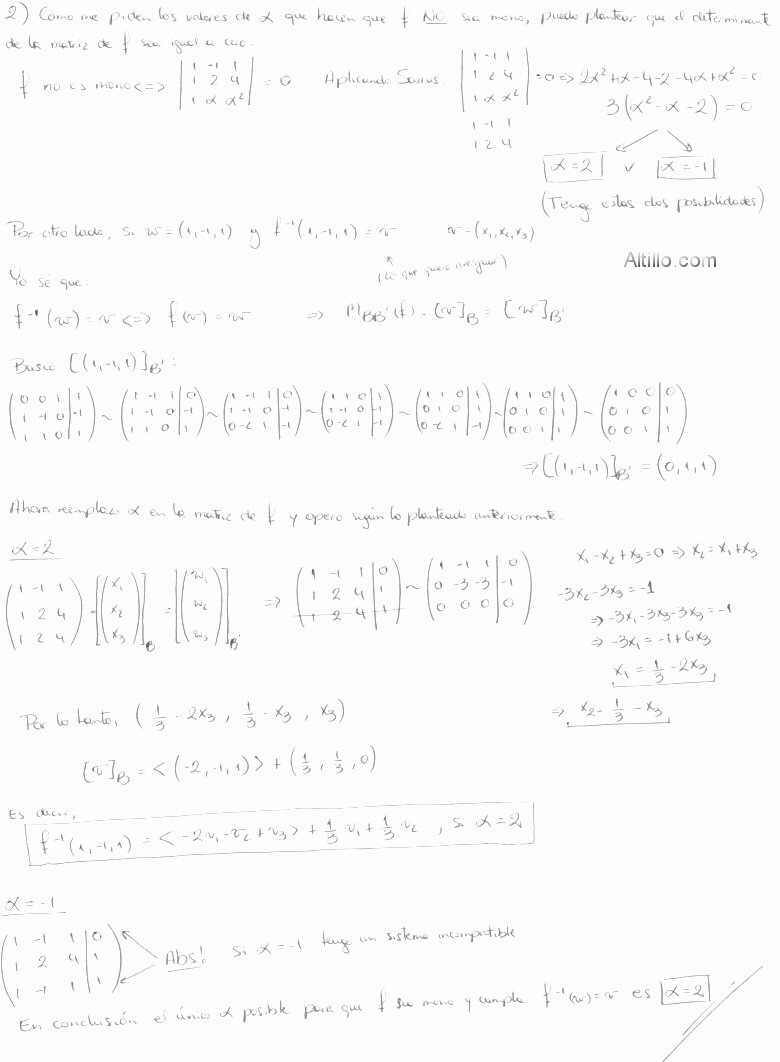 2) Como me piden los valores de α que hacen que f NO sea mono, puedo plantear que el determinante
de la matriz de f sea igual a cero.
f no es mono <=> | 1 -1 1 | 1 2 4 | 1 α α² | = 0 Aplicando Sarrus. | 1 -1 1 | 1 2 4 | 1 α α² | 1 -1 1 | 1 2 4 = 0 => 2α² + α - 4 - 2 - 4α + α² = 0
3(α² - α - 2) = 0
α = 2 v α = -1
(Tengo estas dos posibilidades)
Por otro lado, si w = (1,-1,1) y f⁻¹(1,-1,1) = v v = (x₁,x₂,x₃)
(Lo que quiero averiguar)
Altillo.com
Yo sé que:
f⁻¹(w) = v <=> f(v) = w => M_BB'(f) . [v]_B = [w]_B'
Busco [(1,-1,1)]_B' :
(0 0 1 | 1; 1 -1 0 | -1; 1 1 0 | 1) ~ (1 -1 1 | 0; 1 -1 0 | -1; 1 1 0 | 1) ~ (1 -1 1 | 0; 1 -1 0 | -1; 0 -2 1 | -1) ~ (1 1 0 | 1; 1 -1 0 | -1; 0 -2 1 | -1) ~ (1 1 0 | 1; 0 1 0 | 1; 0 -2 1 | -1) ~ (1 1 0 | 1; 0 1 0 | 1; 0 0 1 | 1) ~ (1 0 0 | 0; 0 1 0 | 1; 0 0 1 | 1)
=> [(1,-1,1)]_B' = (0,1,1)
Ahora reemplazo α en la matriz de f y opero según lo planteado anteriormente.
α = 2
(1 -1 1; 1 2 4; 1 2 4) . [(x₁; x₂; x₃)]_B = [(w₁; w₂; w₃)]_B' => (1 -1 1 | 0; 1 2 4 | 1; 1 2 4 | 1) ~ (1 -1 1 | 0; 0 -3 -3 | -1; 0 0 0 | 0)
x₁ - x₂ + x₃ = 0 => x₂ = x₁ + x₃
-3x₂ - 3x₃ = -1
=> -3x₁ - 3x₃ - 3x₃ = -1
=> -3x₁ = -1 + 6x₃
x₁ = 1/3 - 2x₃
=> x₂ = 1/3 - x₃
Por lo tanto, (1/3 - 2x₃ , 1/3 - x₃ , x₃)
[v]_B = < (-2,-1,1) > + (1/3 , 1/3 , 0)
Es decir,
f⁻¹(1,-1,1) = < -2v₁ - v₂ + v₃ > + 1/3 v₁ + 1/3 v₂ , si α = 2
α = -1
(1 -1 1 | 0; 1 2 4 | 1; 1 -1 1 | 1) Abs! Si α = -1 tengo un sistema incompatible
En conclusión el único α posible para que f sea mono y cumpla f⁻¹(w) = v es α = 2